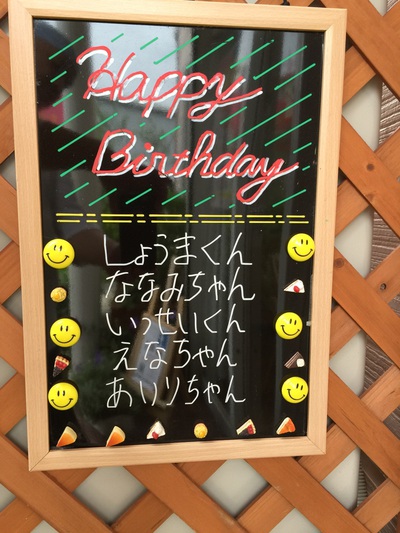 Happy
Birthday
しょうまくん
ななみちゃん
いっせいくん
えなちゃん
あいりちゃん